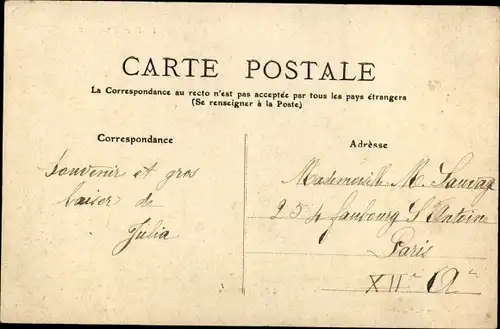 CARTE POSTALE
La Correspondance au recto n'est pas acceptée par tous les pays étrangers
(Se renseigner à la Poste)
Correspondance
Adrèsse
Souvenir et gros
baiser de
Julia
Mademoiselle M. Sauvag
254 faubourg St Antoine
Paris
XIIe Ar